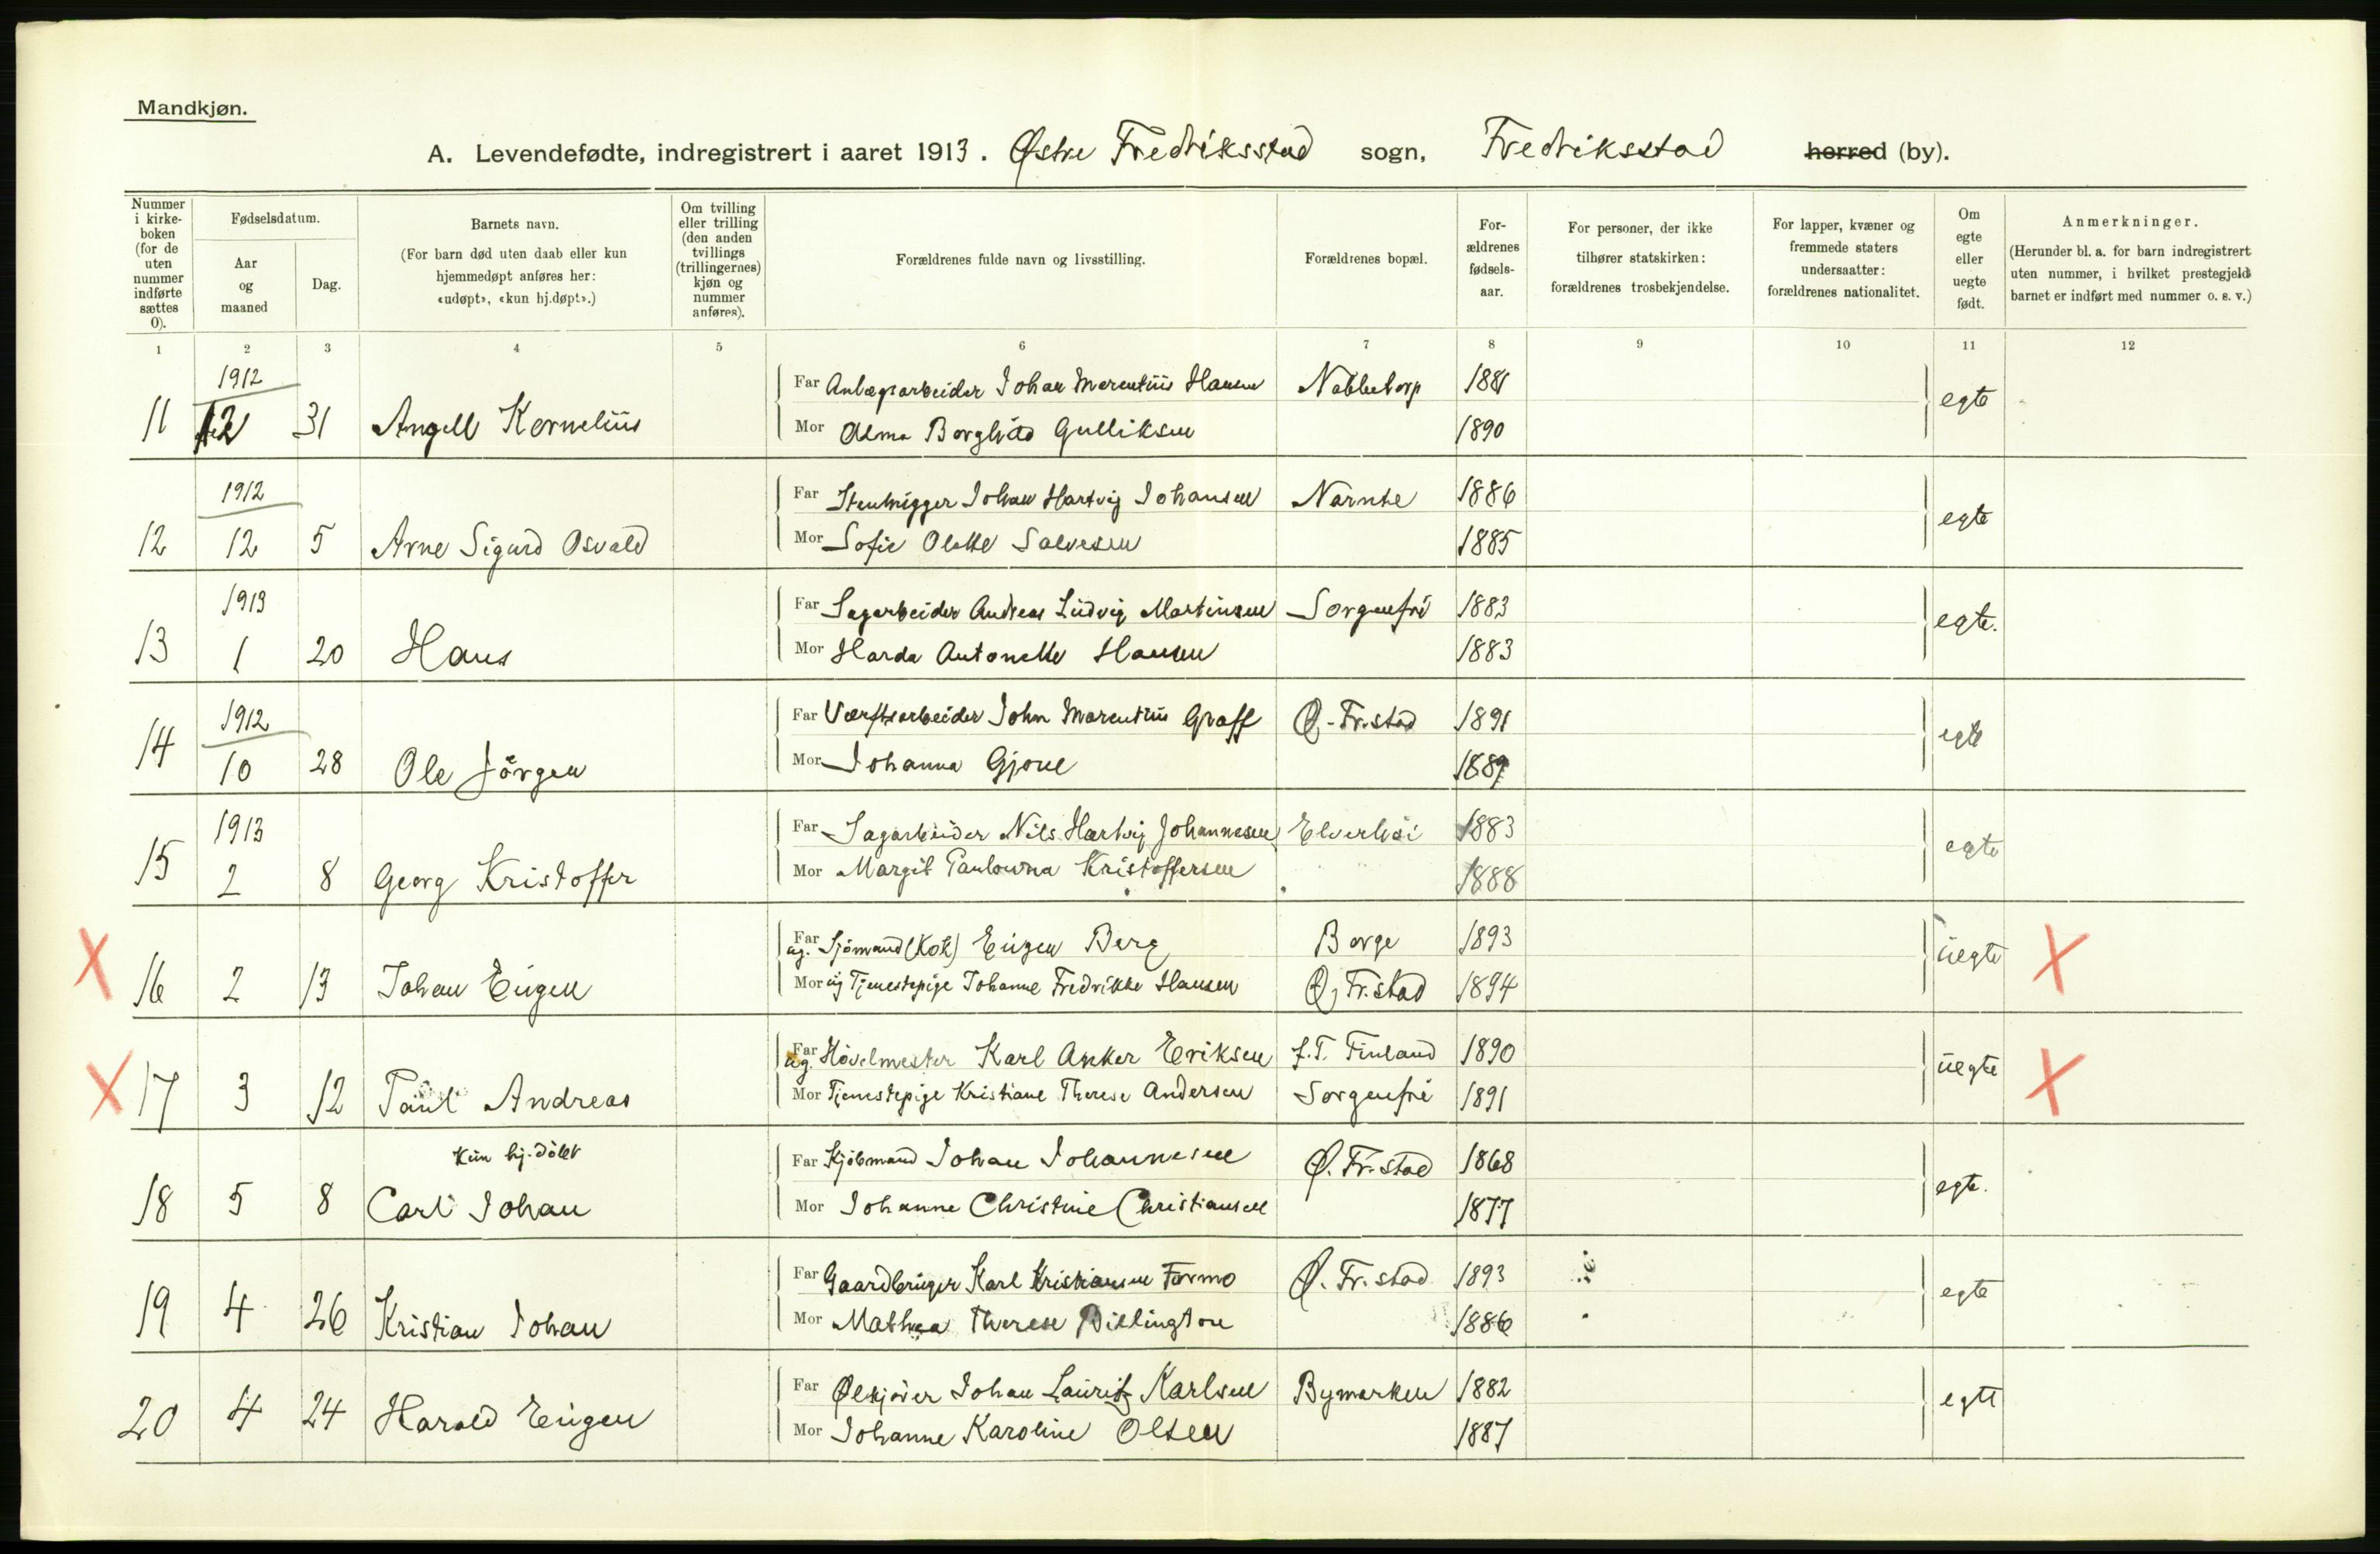 Mandkjøn.
A. Levendefødte, indregistrert i aaret 1913. Østre Fredriksstad sogn, Fredriksstad herred (by).
Nummer i kirke-boken (for de uten nummer indførte sættes 0).
Fødselsdatum.
Aar og maaned
Dag.
Barnets navn.
(For barn død uten daab eller kun hjemmedøpt anføres her: «udøpt», «kun hj.døpt».)
Om tvilling eller trilling (den anden tvillings (trillingernes) kjøn og nummer anføres).
Forældrenes fulde navn og livsstilling.
Forældrenes bopæl.
For-ældrenes fødsels-aar.
For personer, der ikke tilhører statskirken: forældrenes trosbekjendelse.
For lapper, kvæner og fremmede staters undersaatter: forældrenes nationalitet.
Om egte eller uegte født.
Anmerkninger.
(Herunder bl. a. for barn indregistrert uten nummer, i hvilket prestegjeld barnet er indført med nummer o. s. v.)
1 2 3 4 5 6 7 8 9 10 11 12
1912
Far Anlægsarbeider Johan Marentius Hansen Nabbetorp 1881
11 12 31 Angell Kornelius egte
Mor Alma Borghild Gulliksen 1890
1912
Far Stenhugger Johan Hartvig Johansen Narnte 1886
12 12 5 Arne Sigurd Osvald egte
Mor Sofie Olette Salvesen 1885
1913
Far Sagarbeider Andreas Ludvig Martinsen Sorgenfri 1883
13 1 20 Hans egte.
Mor Harda Antonette Hansen 1883
1912
Far Værftsarbeider John Marentius Graff Ø.-Fr.stad 1891
14 10 28 Ole Jörgen egte
Mor Johanna Gjone 1889
1913
Far Sagarbeider Nils Hartvig Johannesen Elverhöi 1883
15 2 8 Georg Kristoffer egte
Mor Margit Paulowna Kristoffersen 1888
Far ug. Sjömand (Kok) Eugen Berg Borge 1893
X 16 2 13 Johan Eugen uegte X
Mor ug Tjenestepige Johanne Fredrikke Hansen Ø, Fr.stad 1894
Far ug. Hövelmester Karl Anker Eriksen f.T. Finland 1890
X 17 3 12 Paul Andreas uegte X
Mor Tjenestepige Kristiane Therese Andersen Sorgenfri 1891
Kun hj.döbt
Far Kjöbmand Johan Johannesen Ø. Fr.stad 1868
18 5 8 Carl Johan egte.
Mor Johanne Christine Christiansen 1877
Far Gaardbruger Karl Kristiansen Formo Ø. Fr.stad 1893
19 4 26 Kristian Johan egte
Mor Mathea Therese Billington 1886
Far Ølkjører Johan Lauritz Karlsen Bymarken 1882
20 4 24 Harald Eugen egte
Mor Johanne Karoline Olsen 1887